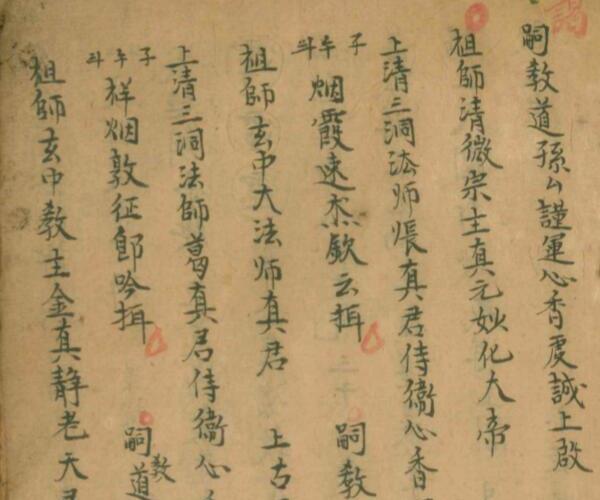 謁
嗣教道孫厶謹運心香虔誠上啟
祖師清微宗主真元妙化大帝
上清三洞法师張真君侍衛心香
斗牛子
烟霞速 欽云拜
嗣教
祖師玄中大法师真君 上古
上清三洞法師葛真君侍衛心
斗牛子
祥烟敦征郎吟拜
嗣教道
祖師玄中教主金真静老天